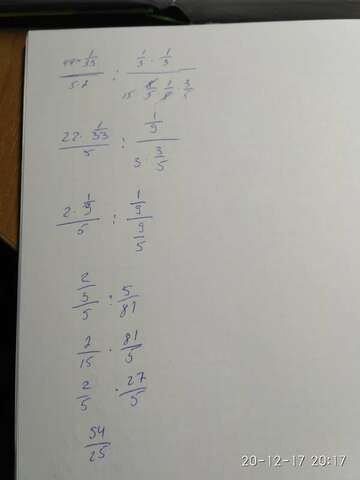 44·1/33 / 5·2 : 1/3 · 1/3 / 15 · 8/5 · 1/8 · 3/5
22·1/33 / 5 : 1/9 / 3·3/5
2·1/3 / 5 : 1/9 / 9/5
2/3 / 5 : 5/81
2/15 · 81/5
2/5 · 27/5
54/25
20-12-17 20:17